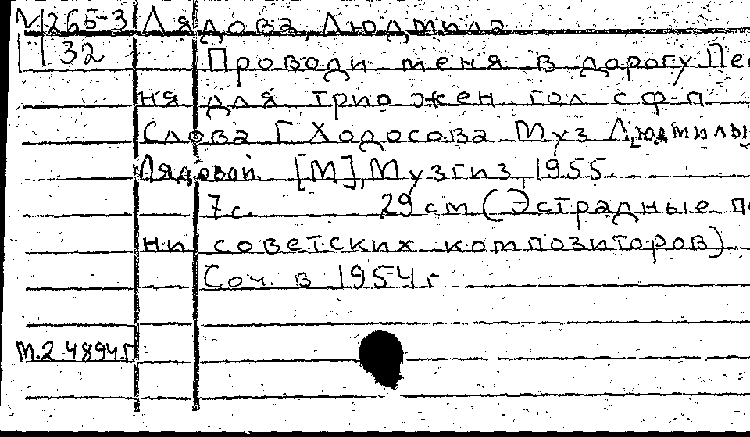 М265-3 Лядова, Людмила
32 Проводи меня в дорогу Пес
ня для трио жен гол с ф-п
Слова Г Ходосова Муз Людмилы
Лядовой [М], Музгиз, 1955
7 с. 29 см (Эстрадные пе
ни советских композиторов)
Соч. в 1954 г